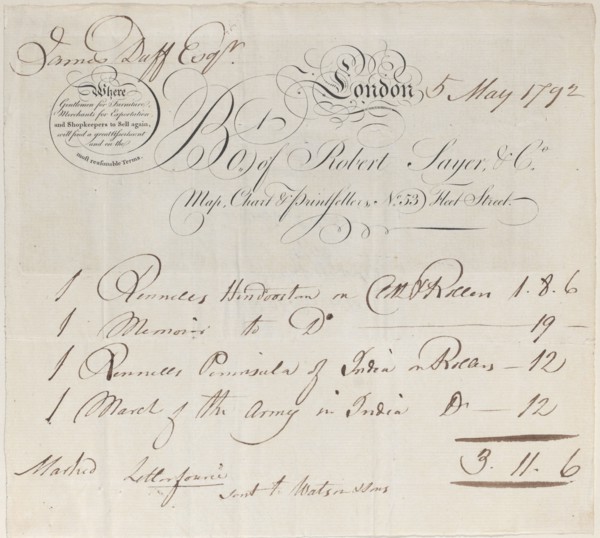 James Duff Esqr.
London 5 May 1792
Where
Gentlemen for Furniture,
Merchants for Exportation
and Shopkeepers to Sell again,
will find a great Assortment
and on the
most reasonable Terms.
Bot. of Robert Sayer, & Co.
Map, Chart & Printseller, No. 53 Fleet Street.
1 Rennells Hindoostan on & Rollers 1.8.6
1 Memoir to Do. 19 —
1 Rennells Peninsula of India on Rollers — 12
1 March of the Army in India Do — 12
3. 11. 6
Marked
sent to Watson & Sons